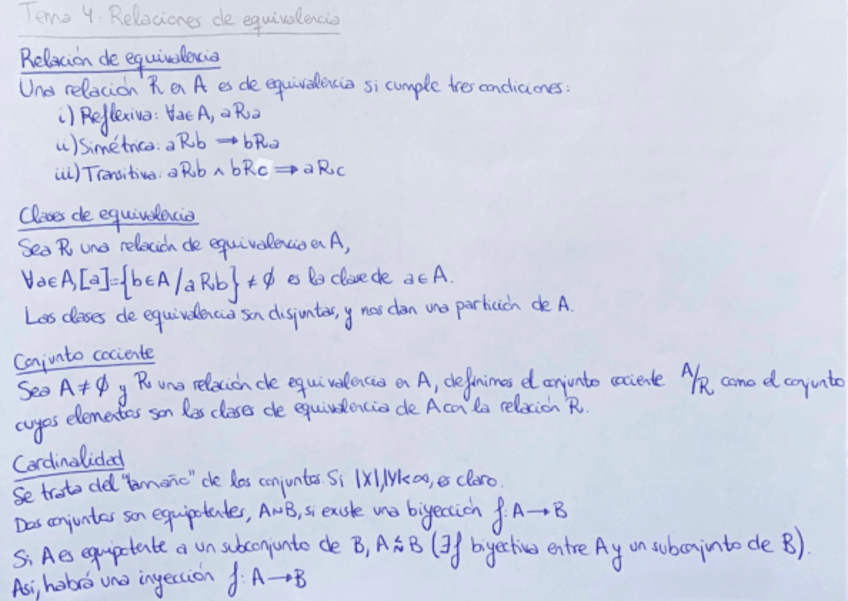 Tema 4: Relaciones de equivalencia
Relación de equivalencia
Una relación R en A es de equivalencia si cumple tres condiciones:
i) Reflexiva: ∀a∈A, aRa
ii) Simétrica: aRb ⟹ bRa
iii) Transitiva: aRb ∧ bRc ⟹ aRc
Clases de equivalencia
Sea R una relación de equivalencia en A,
∀a∈A, [a]={b∈A / aRb} ≠ ∅ es la clase de a∈A.
Las clases de equivalencia son disjuntas, y nos dan una partición de A.
Conjunto cociente
Sea A ≠ ∅ y R una relación de equivalencia en A, definimos el conjunto cociente A/R como el conjunto
cuyos elementos son las clases de equivalencia de A con la relación R.
Cardinalidad
Se trata del "tamaño" de los conjuntos. Si |X|,|Y|<∞, es claro.
Dos conjuntos son equipotentes, A∼B, si existe una biyección f: A→B
Si A es equipotente a un subconjunto de B, A≲B (∃f biyectiva entre A y un subconjunto de B).
Así, habrá una inyección f: A→B